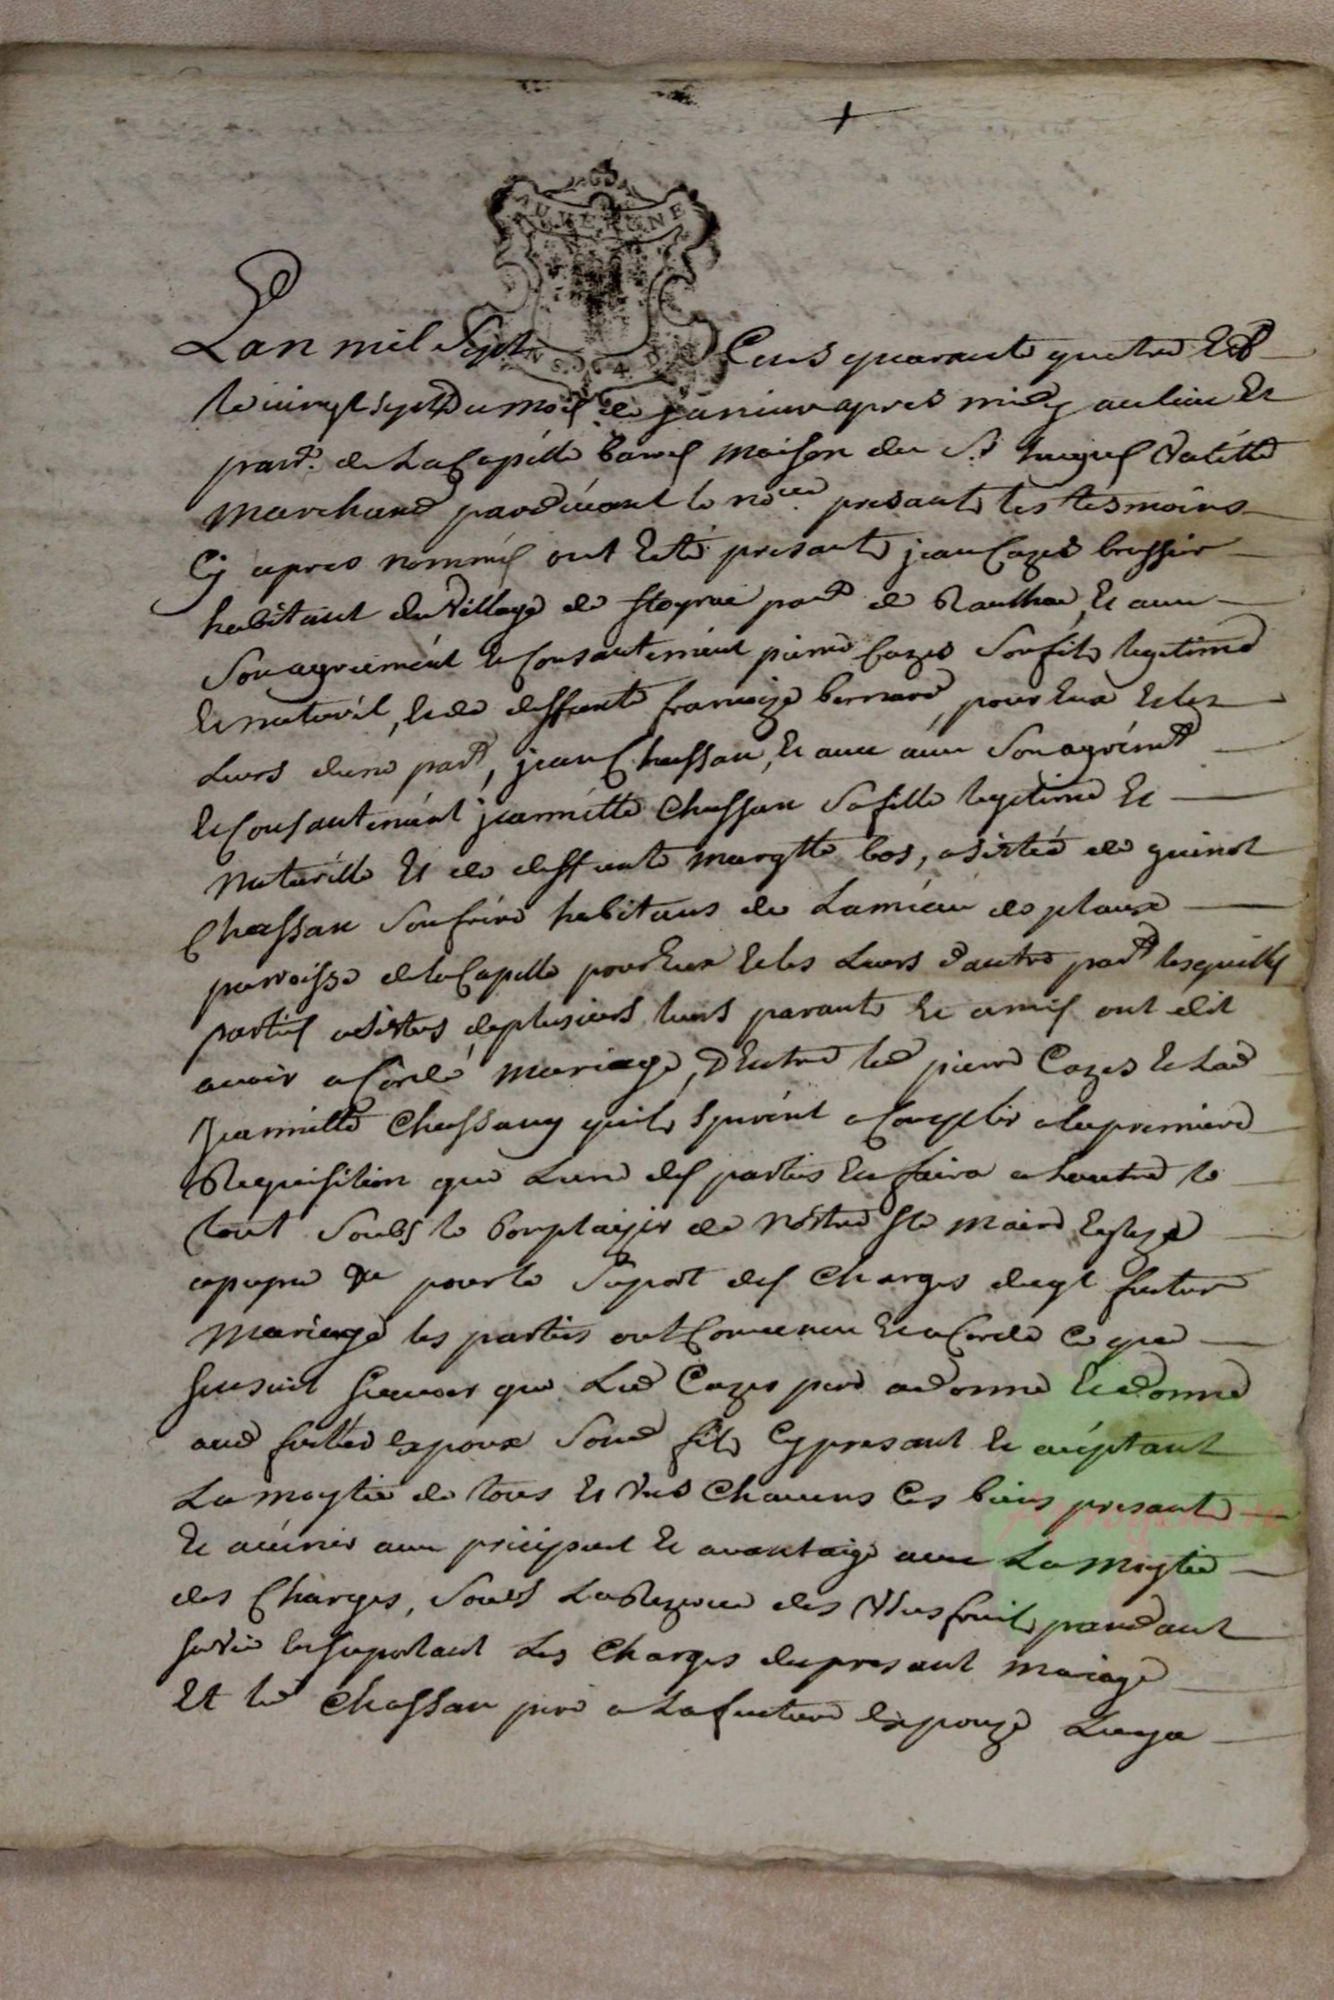 AUVERGNE
Lan mil Sept Cens quarante quatre Et
le vingt sept Du mois de janvier apres midy au lieu Et
parr. de La Capélle barrés maison du Sr huguet Valétte
marchand pardevant le nore. presants les tesmoins
Cy apres nommés ont Esté présants jean Cazes brassier
habitant du village de parr de Raulhac, Et avec
Son agreement Et Consantement pierre Cazes Son fils legitime
Et naturél, Et de deffunte francoize bernard pour Eux Et les
Leurs dune part, jean Chassan, Et avec Son agrément
Et Consantemént jeannétte Chassan Sa fille legitime Et
Naturélle Et de deffunte margtte bos, asistée de guinot
Chassan Son frére habitans de de plaux
parroisse de la Capelle pour Eux Et les Leurs dautre part lesquelles
partiés asistés de plusieurs leurs parants Et amis ont dit
avoir acordé mariage, D'Entre led pierre Cazes Et Lad
Jeannétte Chassang quils acomplir a la premiere
Requisition que Lune des parties En faira a Lautre le
tout Soubs le bon plaizir de nôtre Ste maire Esglize
pour le Suport des Charges dicyt futur
Mariage les parties ont Convenu Et acordé Ce que
Sensuit Scavoir que Led Cazes pere a donné Et donne
aud futur Expoux Sond fils Cy presant Et aceptant
La moytié de tous Et Uns Chacuns Ces biens presants
Et avénir avec précipeut Et avantaige avec La moytié
des Charges, Soubs La Rezerve des Usufruits pandant
Sa vie En suportant Les Charges du presant mariage
Et led Chassan pere a La future Expouze Luy a